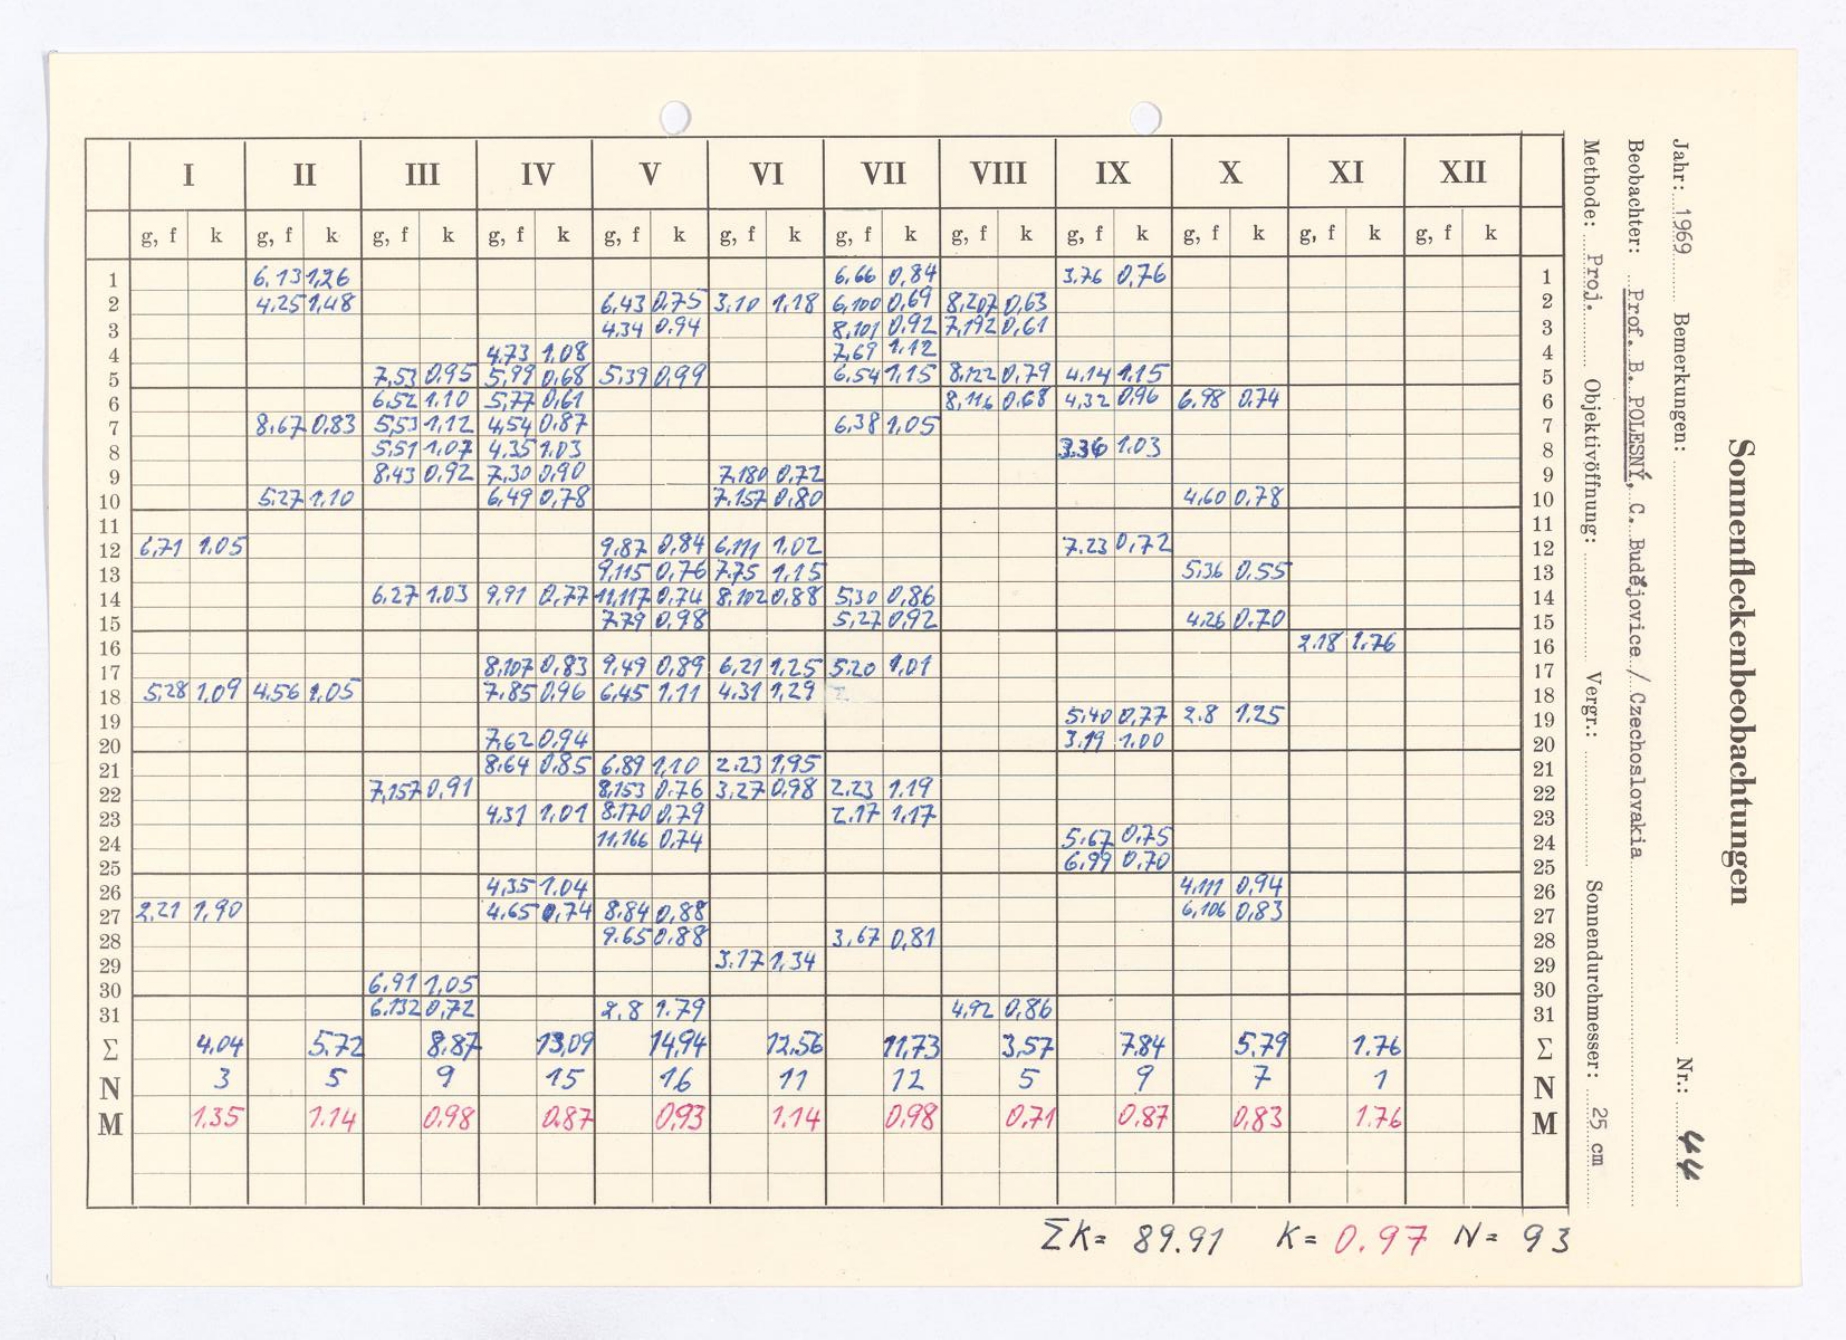 Sonnenfleckenbeobachtungen
Jahr: 1969 Bemerkungen: Nr.: 44
Beobachter: Prof. B. POLESNÝ, C. Budějovice / Czechoslovakia
Methode: Proj. Objektivöffnung: Vergr.: Sonnendurchmesser: 25 cm
I II III IV V VI VII VIII IX X XI XII
g, f k g, f k g, f k g, f k g, f k g, f k g, f k g, f k g, f k g, f k g, f k g, f k
1 6,13 1,26 6,66 0,84 3,76 0,76 1
2 4,25 1,48 6,43 0,75 3,10 1,18 6,100 0,69 8,207 0,63 2
3 4,34 0,94 8,101 0,92 7,192 0,61 3
4 4,73 1,08 7,69 1,12 4
5 7,53 0,95 5,99 0,68 5,39 0,99 6,54 1,15 8,122 0,79 4,14 1,15 5
6 6,52 1,10 5,77 0,61 8,116 0,68 4,32 0,96 6,98 0,74 6
7 8,67 0,83 5,53 1,12 4,54 0,87 6,38 1,05 7
8 5,51 1,07 4,35 1,03 3,36 1,03 8
9 8,43 0,92 7,30 0,90 7,180 0,72 9
10 5,27 1,10 6,49 0,78 7,157 0,80 4,60 0,78 10
11 11
12 6,71 1,05 9,87 0,84 6,111 1,02 7,23 0,72 12
13 9,115 0,76 7,75 1,15 5,36 0,55 13
14 6,27 1,03 9,91 0,77 11,117 0,74 8,102 0,88 5,30 0,86 14
15 7,79 0,98 5,27 0,92 4,26 0,70 15
16 2,18 1,76 16
17 8,107 0,83 9,49 0,89 6,21 1,25 5,20 1,01 17
18 5,28 1,09 4,56 1,05 7,85 0,96 6,45 1,11 4,31 1,29 18
19 5,40 0,77 2,8 1,25 19
20 7,62 0,94 3,19 1,00 20
21 8,64 0,85 6,89 1,10 2,23 1,95 21
22 7,157 0,91 8,153 0,76 3,27 0,98 2,23 1,19 22
23 4,31 1,01 8,170 0,79 2,17 1,17 23
24 11,166 0,74 5,67 0,75 24
25 6,99 0,70 25
26 4,35 1,04 4,111 0,94 26
27 2,21 1,90 4,65 0,74 8,84 0,88 6,106 0,83 27
28 9,65 0,88 3,67 0,81 28
29 3,17 1,34 29
30 6,91 1,05 30
31 6,132 0,72 2,8 1,79 4,92 0,86 31
Σ 4,04 5,72 8,87 13,09 14,94 12,56 11,73 3,57 7,84 5,79 1,76 Σ
N 3 5 9 15 16 11 12 5 9 7 1 N
M 1,35 1,14 0,98 0,87 0,93 1,14 0,98 0,71 0,87 0,83 1,76 M
ΣK= 89.91 K= 0.97 N= 93